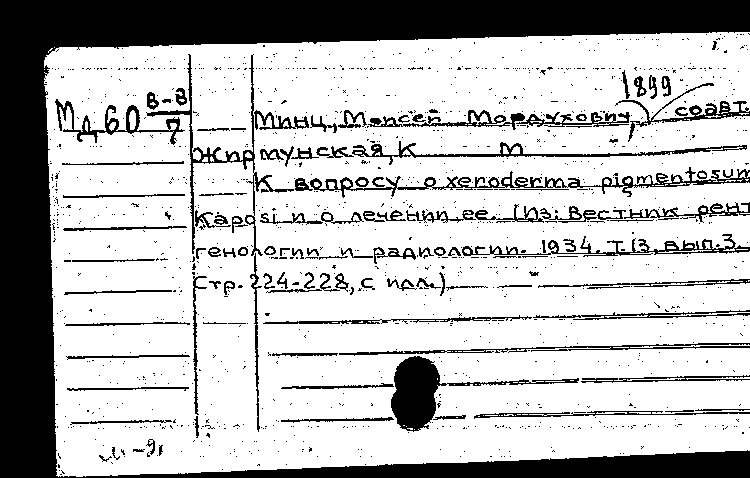 1899
Мд60 В-В/7
Минц, Моисей Мордухович, соавт.
Жирмунская, К М
К вопросу о xeroderma pigmentosum
Kaposi и о лечении ее. (Из: Вестник рент
генологии и радиологии. 1934. Т.13, вып.3.
Стр. 224-228, с илл.)